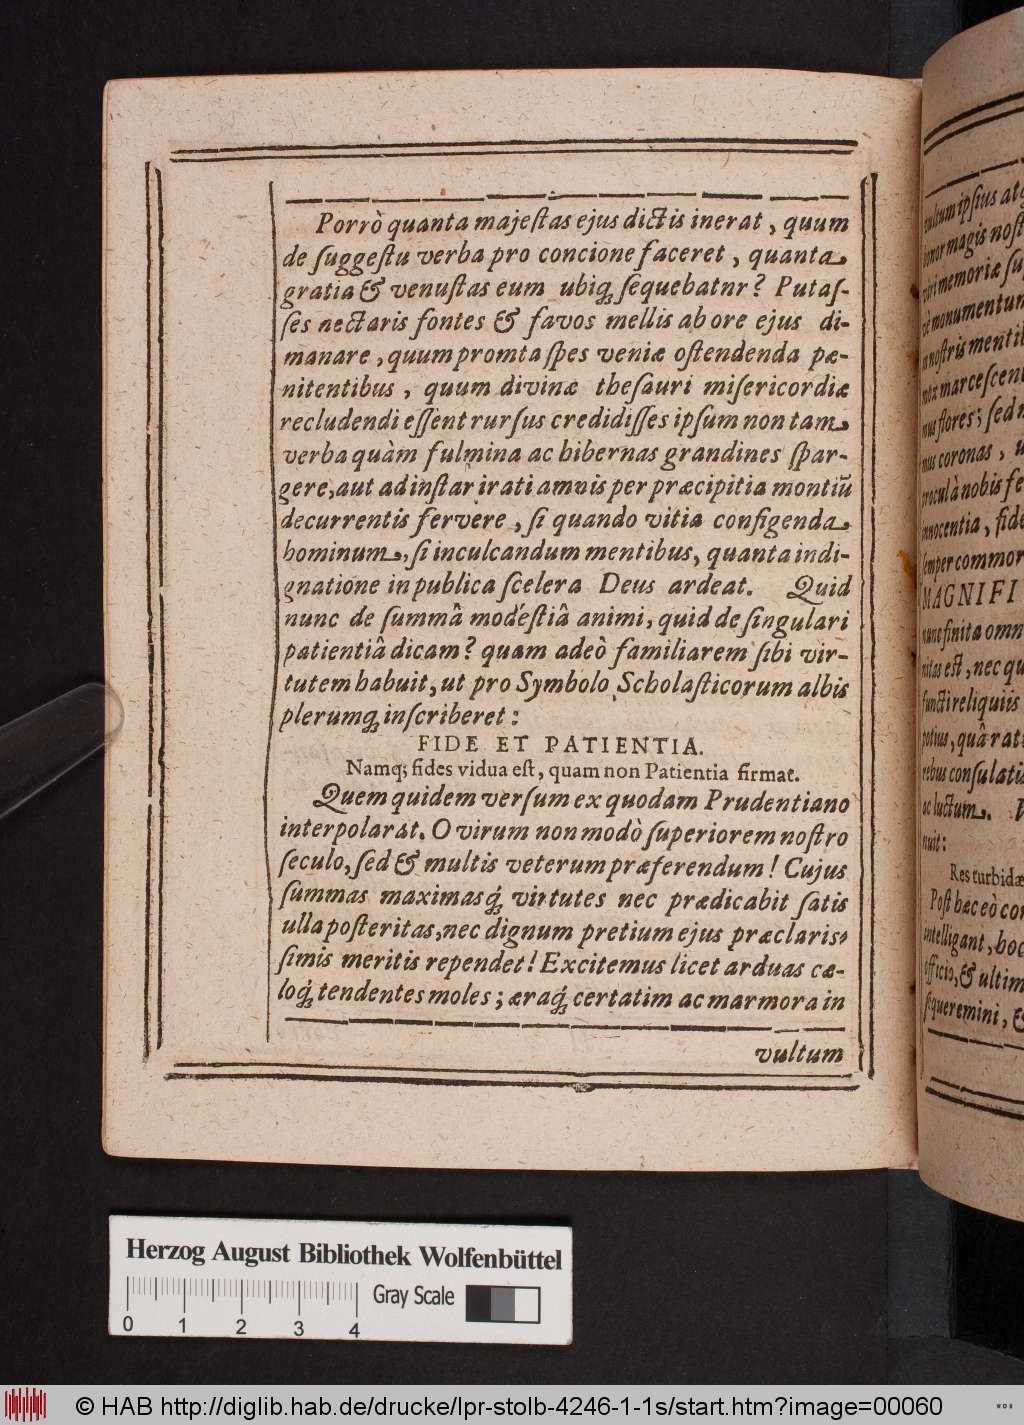 Porrò quanta majeſtas ejus dictis inerat, quum
de ſuggeſtu verba pro concione faceret, quanta
gratia & venuſtas eum ubiq; ſequebatnr? Putaſ-
ſes nectaris fontes & favos mellis ab ore ejus di-
manare, quum promta ſpes veniæ oſtendenda pœ-
nitentibus, quum divinæ theſauri miſericordiæ
recludendi eſſent rurſus credidiſſes ipſum non tam
verba quàm fulmina ac hibernas grandines ſpar-
gere, aut ad inſtar irati amnis per præcipitia montiũ
decurrentis fervere, ſi quando vitia configenda
hominum, ſi inculcandum mentibus, quanta indi-
gnatione in publica ſcelera Deus ardeat. Quid
nunc de ſummâ modeſtiâ animi, quid de ſingulari
patientiâ dicam? quam adeò familiarem ſibi vir-
tutem habuit, ut pro Symbolo Scholaſticorum albis
plerumq; inſcriberet:
FIDE ET PATIENTIA.
Namq; fides vidua eſt, quam non Patientia firmat.
Quem quidem verſum ex quodam Prudentiano
interpolarat. O virum non modò ſuperiorem noſtro
ſeculo, ſed & multis veterum præferendum! Cujus
ſummas maximasq́; virtutes nec prædicabit ſatis
ulla poſteritas, nec dignum pretium ejus præclariſ-
ſimis meritis rependet! Excitemus licet arduas cæ-
loq́; tendentes moles; æraq́; certatim ac marmora in
vultum
vultum ipſius
honor magis
memoriæ
monumentum
noſtris
mox marceſcent
flores; ſed
coronas,
procul à nobis
innocentia, fide
ſemper
MAGNIFI
nunc finita omn
eſt, nec
functi reliquiis
potius, quâ
rebus
ac luctum.
nuit:
Res turbidæ
Poſt hæc eò
intelligant, hoc
officio, & ultim
ſequeremini, &
Herzog August Bibliothek Wolfenbüttel
Gray Scale
0 1 2 3 4
© HAB http://diglib.hab.de/drucke/lpr-stolb-4246-1-1s/start.htm?image=00060